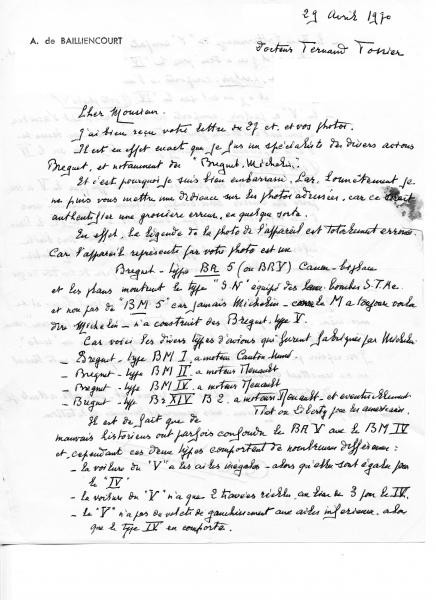 29 Avril 1970
A. de BAILLIENCOURT
Docteur Fernand
Cher Monsieur.
J'ai bien reçu votre lettre du 27 ct. et vos photos.
Il est en effet exact que je fus un spécialiste des divers avions
Breguet, et notamment des "Breguet. Michelin".
Et c'est pourquoi je suis bien embarrassé. Car, honnêtement je
ne puis vous mettre une dédicace sur les photos adressées, car ce serait
authentifier une grossière erreur, en quelque sorte.
En effet, la légende de la photo de l'appareil est totalement erronée
Car l'appareil représenté par votre photo est un
Breguet - type BR 5 (ou BRV) Canon-
et les plans montrent le type "S.N" équipé des bombes S.T.Ae.
et non pas de "BM 5" car jamais Michelin - le M a toujours voulu
dire Michelin - n'a construit des Breguet. type V.
Car voici les divers types d'avions qui furent fabriqués par Michelin
- Breguet - type BM I. a moteur Canton-Unné.
- Breguet - type BM II - a moteur Renault
- Breguet - type BM IV. a moteur Renault
- Breguet - type Br XIV B 2. a moteurs Renault - et éventuellement
Fiat ou Liberty pour les américains.
Il est de fait que de
mauvais historiens ont parfois confondu le BR V avec le BM IV
et, cependant ces deux types comportent de nombreuses différences :
- la voilure du "V" a les ailes inégales - alors qu'elles sont égales pour
le "IV"
- la voilure du "V" n'a que 2 travées au lieu de 3 pour le IV.
- le "V" n'a pas de volets de gauchissement aux ailes inférieures. alors
que le type IV en comporte.